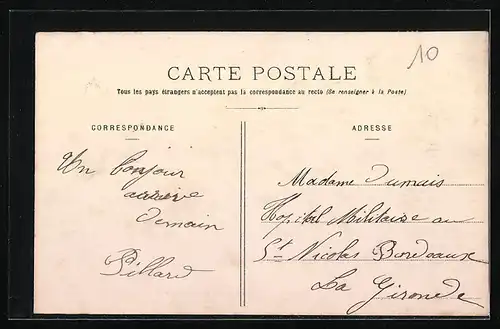 10
CARTE POSTALE
Tous les pays étrangers n'acceptent pas la correspondance au recto (Se renseigner à la Poste)
CORRESPONDANCE
Un bonjour
arrive
demain
Pillard
ADRESSE
Madame Dumais
Hopital Militaire au
St Nicolas Bordeaux
La Gironde